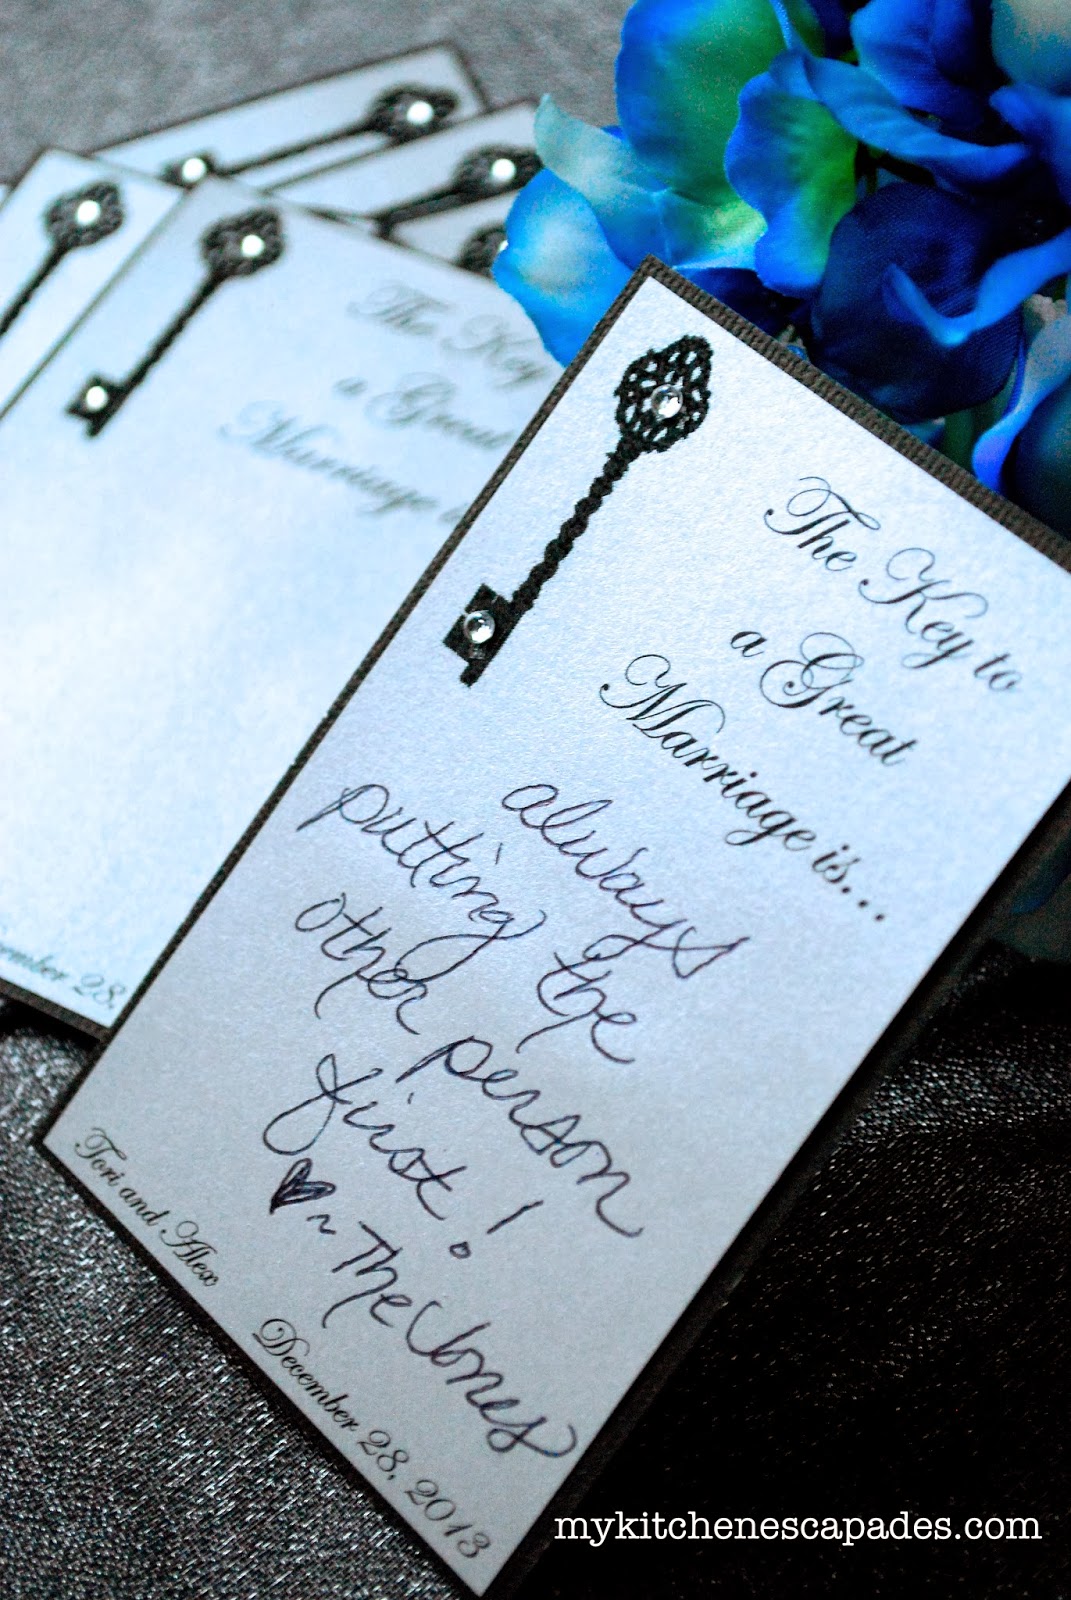 The Key to
a Great
Marriage is...
always
putting the
other person
first!
♥~ The Jones
Tori and Alex
December 28, 2013
The Key
a Great
Marriage
mykitchenescapades.com